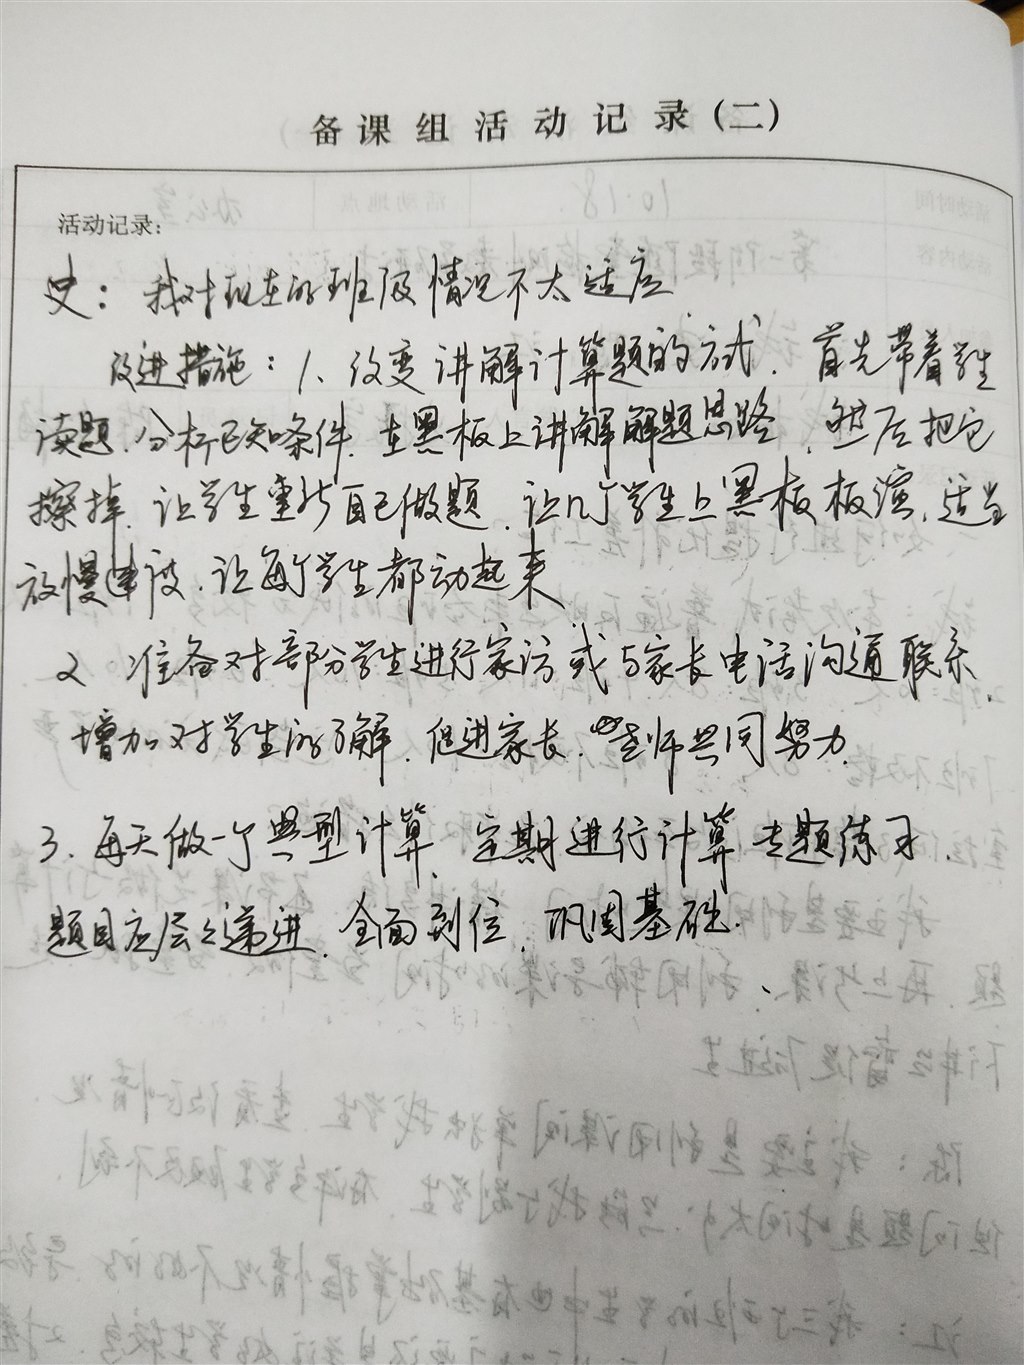 备课组活动记录（二）
活动记录：
史：我对现在的班级情况不太适应
改进措施：1、改变讲解计算题的方式，首先带着学生
读题，分析已知条件，在黑板上讲解解题思路，然后把它
擦掉，让学生重新自己做题，让几个学生上黑板板演，适当
放慢速度，让每个学生都动起来
2 准备对部分学生进行家访或与家长电话沟通联系，
增加对学生的了解，促进家长，老师共同努力，
3、每天做一个典型计算，定期进行计算专题练习，
题目应层层递进，全面到位，巩固基础.